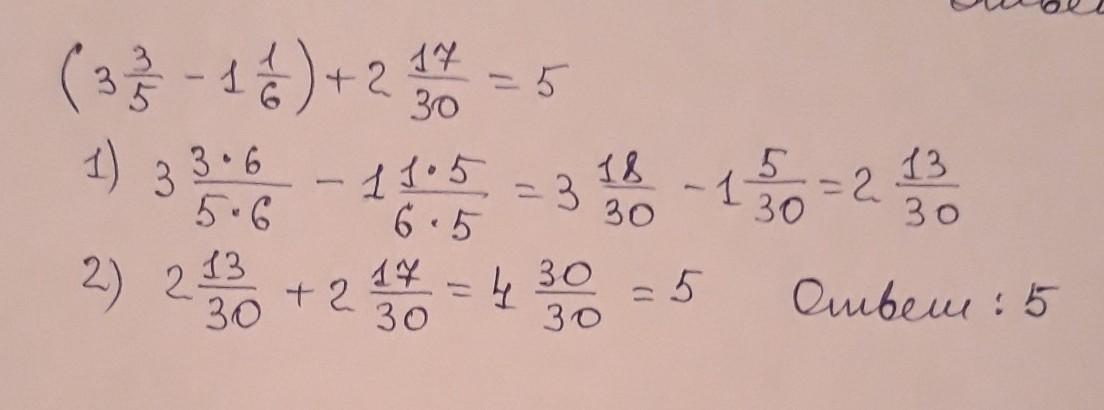 (3 3/5 - 1 1/6) + 2 17/30 = 5
1) 3 3·6/5·6 - 1 1·5/6·5 = 3 18/30 - 1 5/30 = 2 13/30
2) 2 13/30 + 2 17/30 = 4 30/30 = 5 Ответ: 5